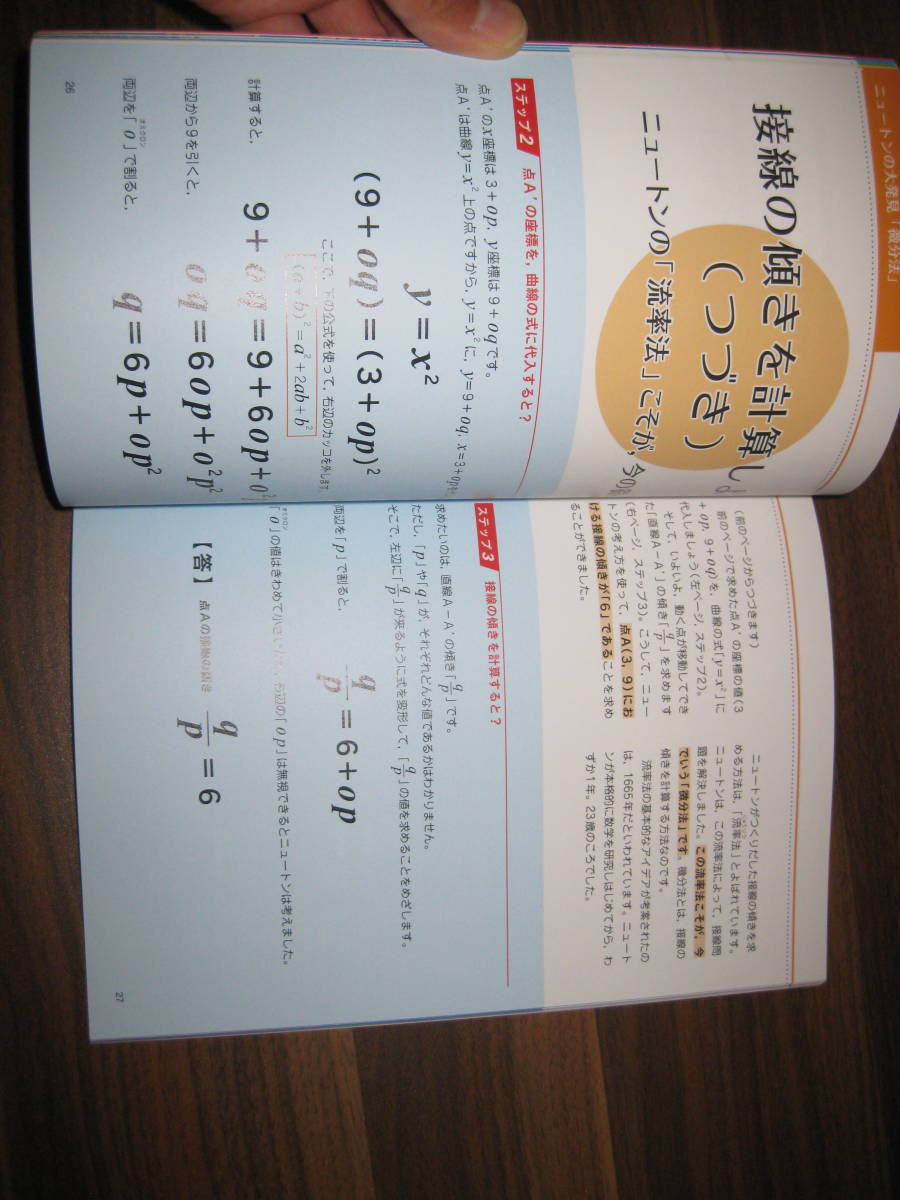 ニュートンの大発見「微分法」
接線の傾きを計算し
(つづき)
ニュートンの「流率法」こそが，今の
ステップ2 点A'の座標を，曲線の式に代入すると？
点A'のx座標は3+op，y座標は9+oqです。
点A'は曲線y=x²上の点ですから，y=x²に，y=9+oq，x=3+op
y=x²
(9+oq)=(3+op)²
ここで，下の公式を使って，右辺のカッコを外します。
(a+b)²=a²+2ab+b²
計算すると，
9+oq=9+6op+o²
両辺から9を引くと，
oq=6op+o²p²
オミクロン
両辺を「o」で割ると，
q=6p+op²
26
（前のページからつづきます）
前のページで求めた点A'の座標の値(3
+op，9+oq)を，曲線の式「y=x²」に
代入しましょう（左ページ，ステップ2）。
そして，いよいよ，動く点が移動してでき
た「直線A−A'」の傾き「q/p」を求めます
（右ページ，ステップ3）。こうして，ニュー
トンの考え方を使って，点A(3，9)にお
ける接線の傾きが「6」であることを求め
ることができました。
ニュートンがつくりだした接線の傾きを求
める方法は，「流率法」とよばれています。
ニュートンは，この流率法によって，接線問
題を解決しました。この流率法こそが，今
でいう「微分法」です。微分法とは，接線の
傾きを計算する方法なのです。
流率法の基本的なアイデアが考案されたの
は，1665年だといわれています。ニュート
ンが本格的に数学を研究しはじめてから，わ
ずか1年。23歳のころでした。
ステップ3 接線の傾きを計算すると？
求めたいのは，直線A−A'の傾き「q/p」です。
ただし，「p」や「q」が，それぞれどんな値であるかはわかりません。
そこで，左辺に「q/p」が来るように式を変形して，「q/p」の値を求めることをめざします。
両辺を「p」で割ると，
q/p=6+op
オミクロン
「o」の値はきわめて小さいので，右辺の「op」は無視できるとニュートンは考えました。
【答】 点Aの接線の傾き q/p=6
27